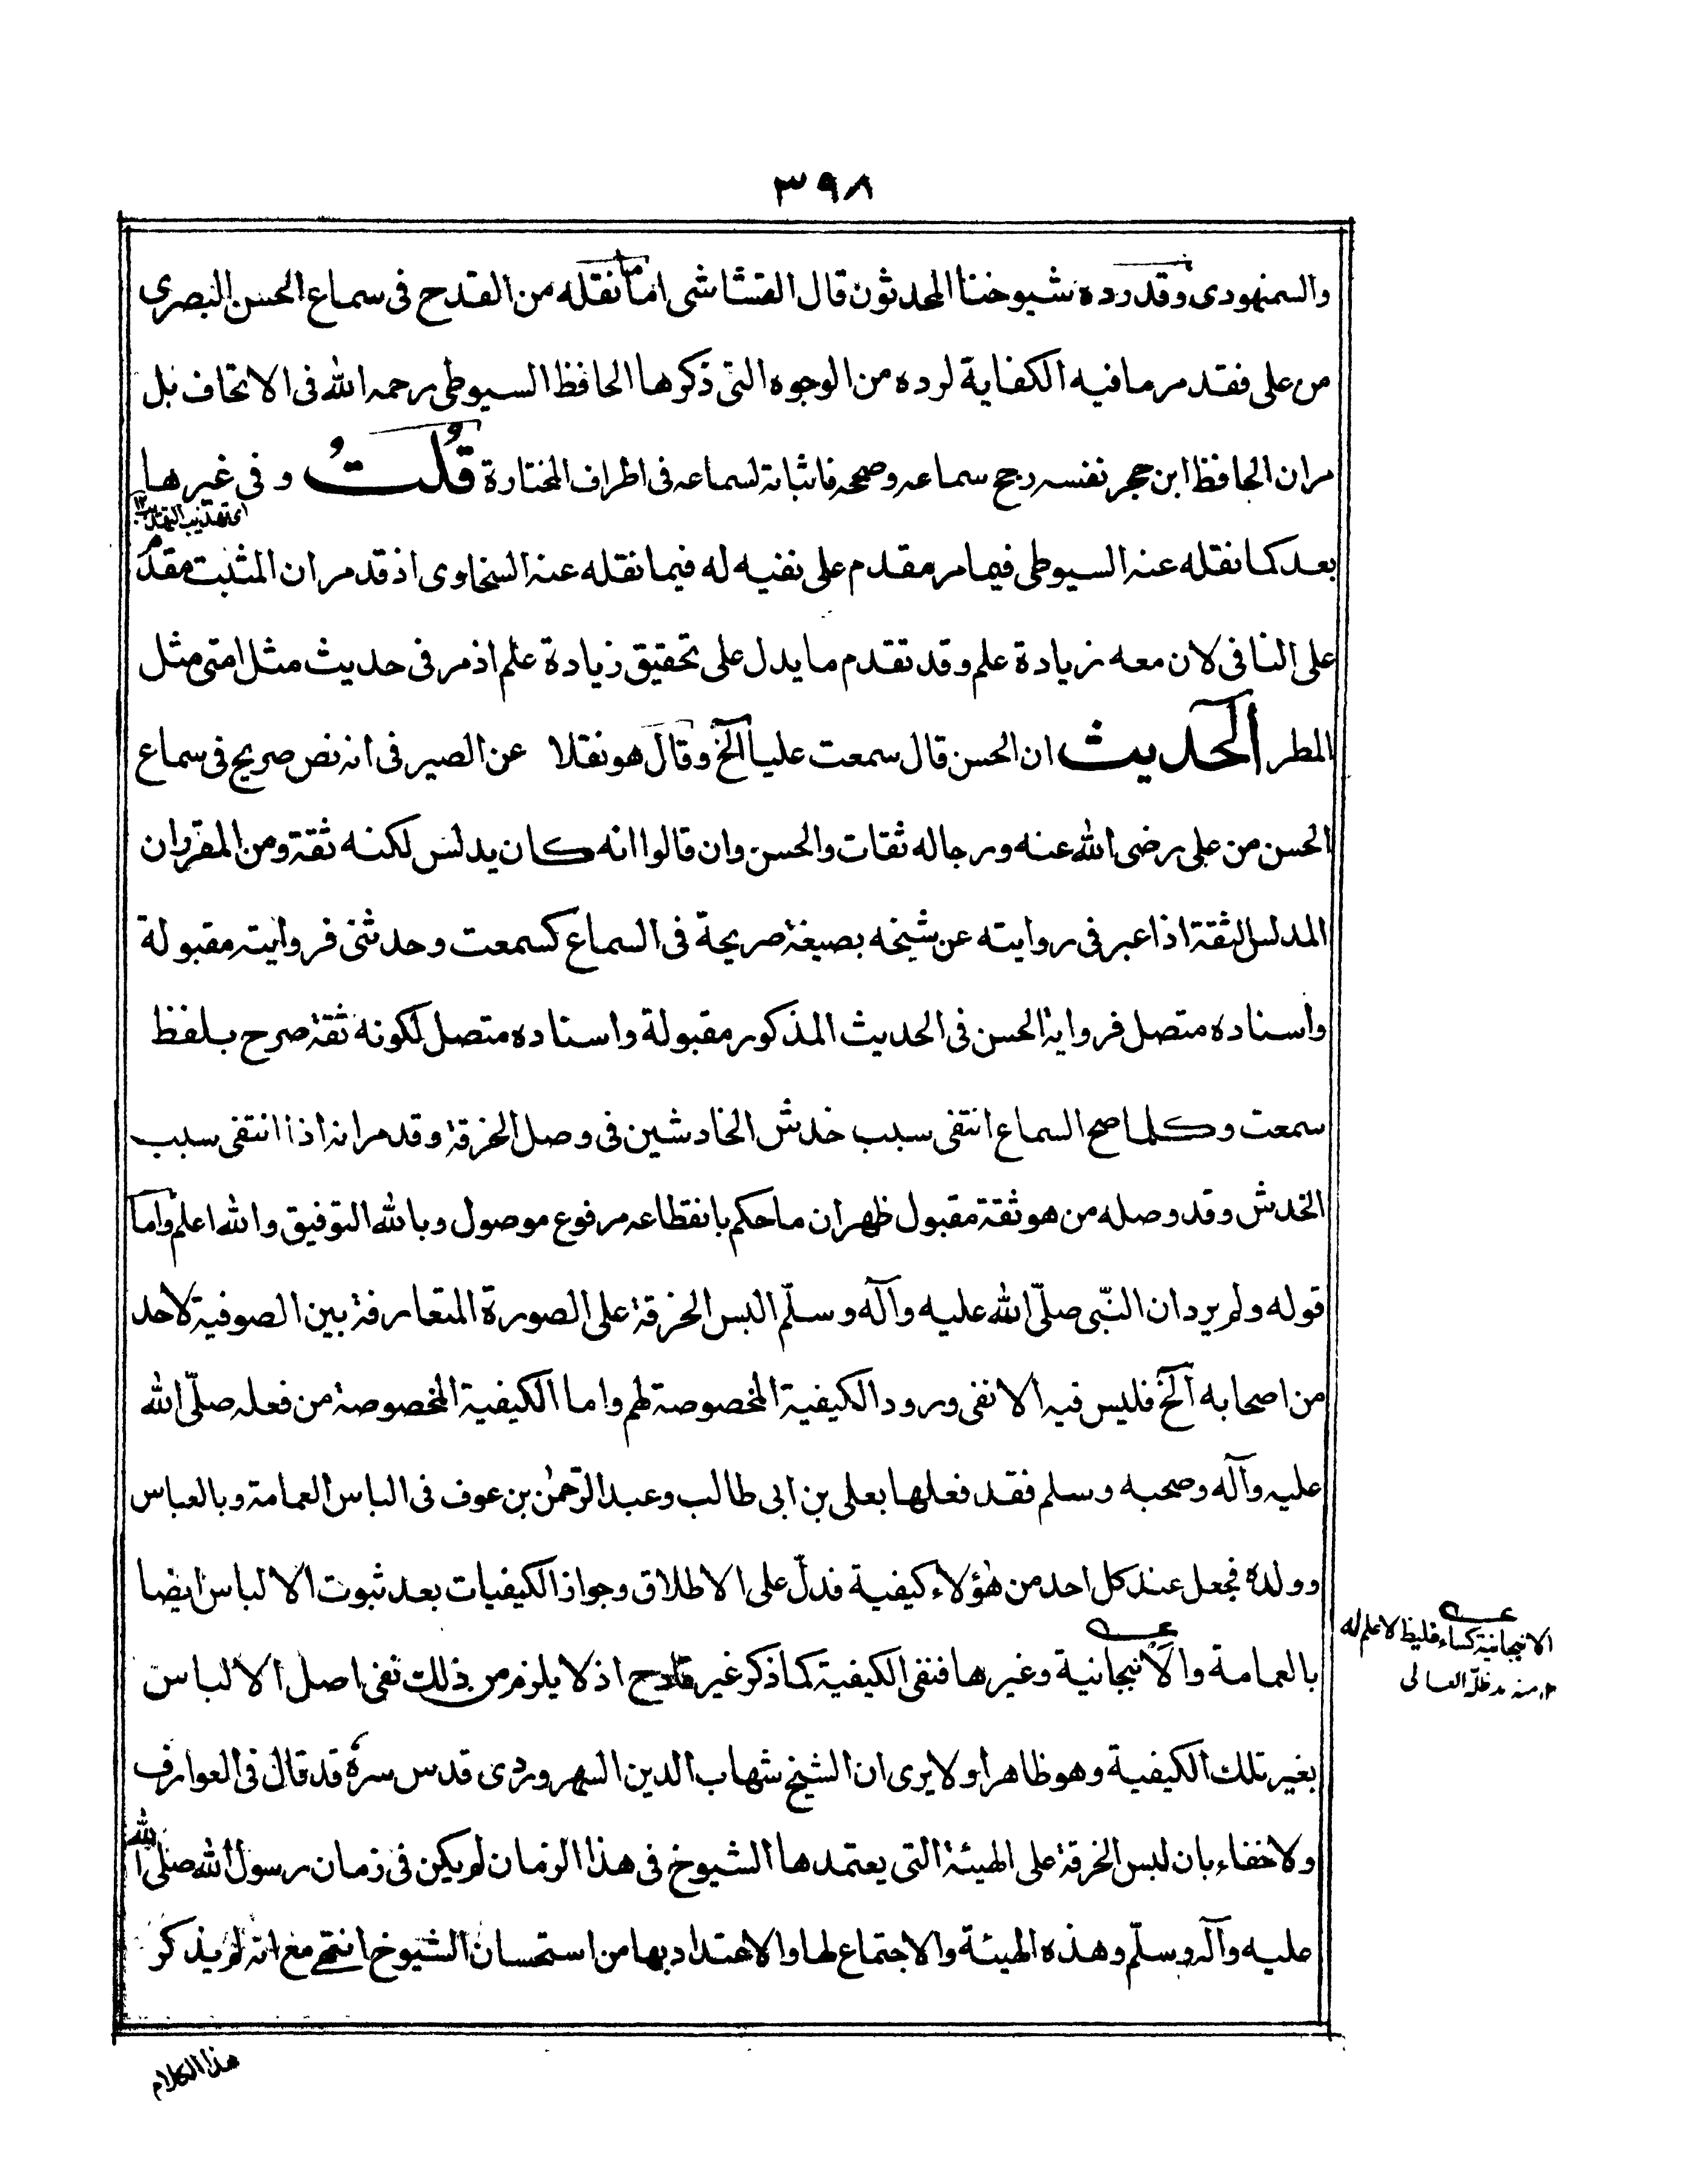 ٣٩٨
والسمنهودى وقد رده شيوخنا المحدثون قال القشاشى اما ما نقله من القدح فى سماع الحسن البصرى
من على فقد مر ما فيه الكفاية لرده من الوجوه التى ذكرها الحافظ السيوطى رحمه الله فى الاتحاف بل
مر ان الحافظ ابن حجر نفسه رجح سماعه وصححه فاثباته لسماعه فى اطراف المختارة قُلتُ و فى غيرها
اى تهذيب التهذيب ١٢
بعد كما نقله عنه السيوطى فيما مر مقدم على نفيه له فيما نقله عنه السخاوى اذ قد مر ان المثبت مقدم
على النافى لان معه زيادة علم وقد تقدم ما يدل على تحقيق زيادة علم اذ مر فى حديث مثل امتى مثل
المطر الحديث ان الحسن قال سمعت عليا الخ وقال هو نقلا عن الصيرفى انه نص صريح فى سماع
الحسن من على رضى الله عنه ورجاله ثقات والحسن وان قالوا انه كان يدلس لكنه ثقة ومن المقرر ان
المدلس الثقة اذا عبر فى روايته عن شيخه بصيغة صريحة فى السماع كسمعت وحدثنى فروايته مقبولة
واسناده متصل فرواية الحسن فى الحديث المذكور مقبولة واسناده متصل لكونه ثقة صرح بلفظ
سمعت وكلما صح السماع انتفى سبب خدش الخادشين فى وصل الخرقة وقد مر انه اذا انتفى سبب
الخدش وقد وصله من هو ثقة مقبول ظهر ان ما حكم بانقطاعه مرفوع موصول وبالله التوفيق والله اعلم واما
قوله ولم يرد ان النّبى صلّى الله عليه وآله وسلّم البس الخرقة على الصورة المتعارفة بين الصوفية لاحد
من اصحابه الخ فليس فيه الا نفى ورود الكيفية المخصوصة لهم واما الكيفية المخصوصة من فعله صلّى الله
عليه وآله وصحبه وسلم فقد فعلها بعلى بن ابى طالب وعبد الرّحمٰن بن عوف فى الباس العمامة وبالعباس
وولده فجعل عند كل احد من هٰؤلاء كيفية فدلّ على الاطلاق وجواز الكيفيات بعد ثبوت الالباس ايضا
بالعمامة والانبجانية وغيرها فنفى الكيفية كما ذكر غير قادح اذ لا يلزم من ذلك نفى اصل الالباس
الانبجانية كساء غليظ لاعلم له
١٢ منه مد ظلّه العالى
بغير تلك الكيفية وهو ظاهر او لا يرى ان الشيخ شهاب الدين السهروردى قدس سره قد قال فى العوارف
ولا خفاء بان لبس الخرقة على الهيئة التى يعتمدها الشيوخ فى هذا الزمان لم يكن فى زمان رسول الله صلى الله
عليه وآله وسلّم وهذه الهيئة والاجتماع لها والاعتداد بها من استحسان الشيوخ انتهى مع انه لم يذكر
هذا الكلام